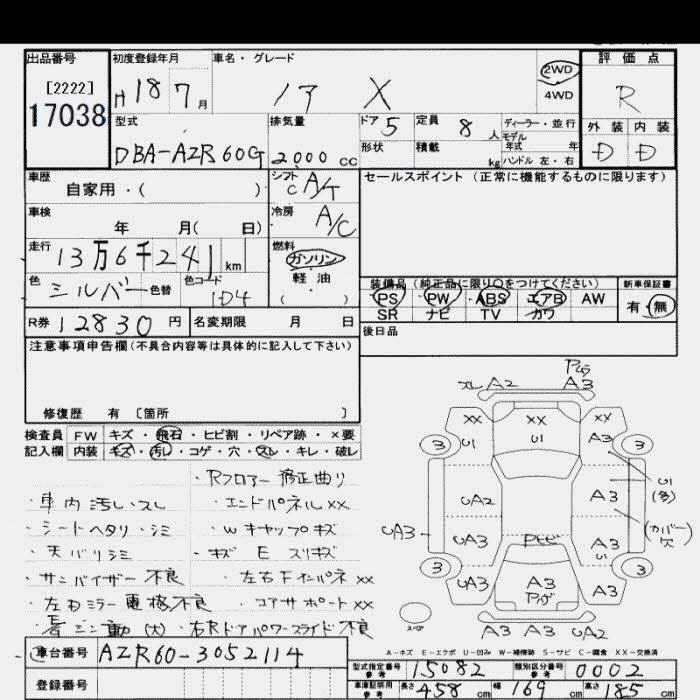 出品番号 初度登録年月 車名・グレード 評価点
[2222] H18 7月 ノア X 2WD R
17038 4WD
型式 排気量 ドア 5 定員 8 人 ディーラー・並行 外装 内装
モデル
DBA-AZR60G 2,000 CC 形状 積載 kg 年式 年 D D
ハンドル 左・右
車歴 シフト セールスポイント (正常に機能するものに限ります)
自家用・( ) C A/T
車検 冷房
年 月( 日) A/C
走行 燃料
13万6千241 km ガソリン
色 色コード 軽油 装備品 (純正品に限り○をつけてください) 新車保証書
シルバー 色替 1D4 ( ) PS PW ABS エアB AW 有・無
SR ナビ TV カワ
R券 12830 円 名変期限 月 日 後日品
注意事項申告欄 (不具合内容等は具体的に記入して下さい)
修復歴 有 〔箇所 〕
検査員 FW キズ・飛石・ヒビ割・リペア跡・×要
記入欄 内装 キズ・汚し・コゲ・穴・スレ・キレ・破レ
・Rフロアー 修正曲り
・車内 汚し・スレ ・エンドパネル XX
・シートヘタリ・シミ ・Wキャップキズ
・天バリシミ ・キズ E スリキズ
・サンバイザー 不良 ・左右 XX
・左右ミラー 電格不良 ・コアサポート XX
(大)・右Rドアパワースライド不良
スレ A2 A3
XX XX XX
3 U1 U1 A3 3
U1
(多)
UA2 A3
UA3 UA3 A3 (カバー
U1 欠)
3 UA3 A3 A3 3
スペア
A3 A3 UA2
A-キズ E-エクボ U-凹み W-補修跡 S-サビ C-腐食 XX-交換済
車台番号 AZR60-3052114
登録番号
型式指定番号 参考 15082 類別区分番号 参考 0002
車庫証明用 参考 長さ 458 cm 幅 169 cm 高さ 185 cm